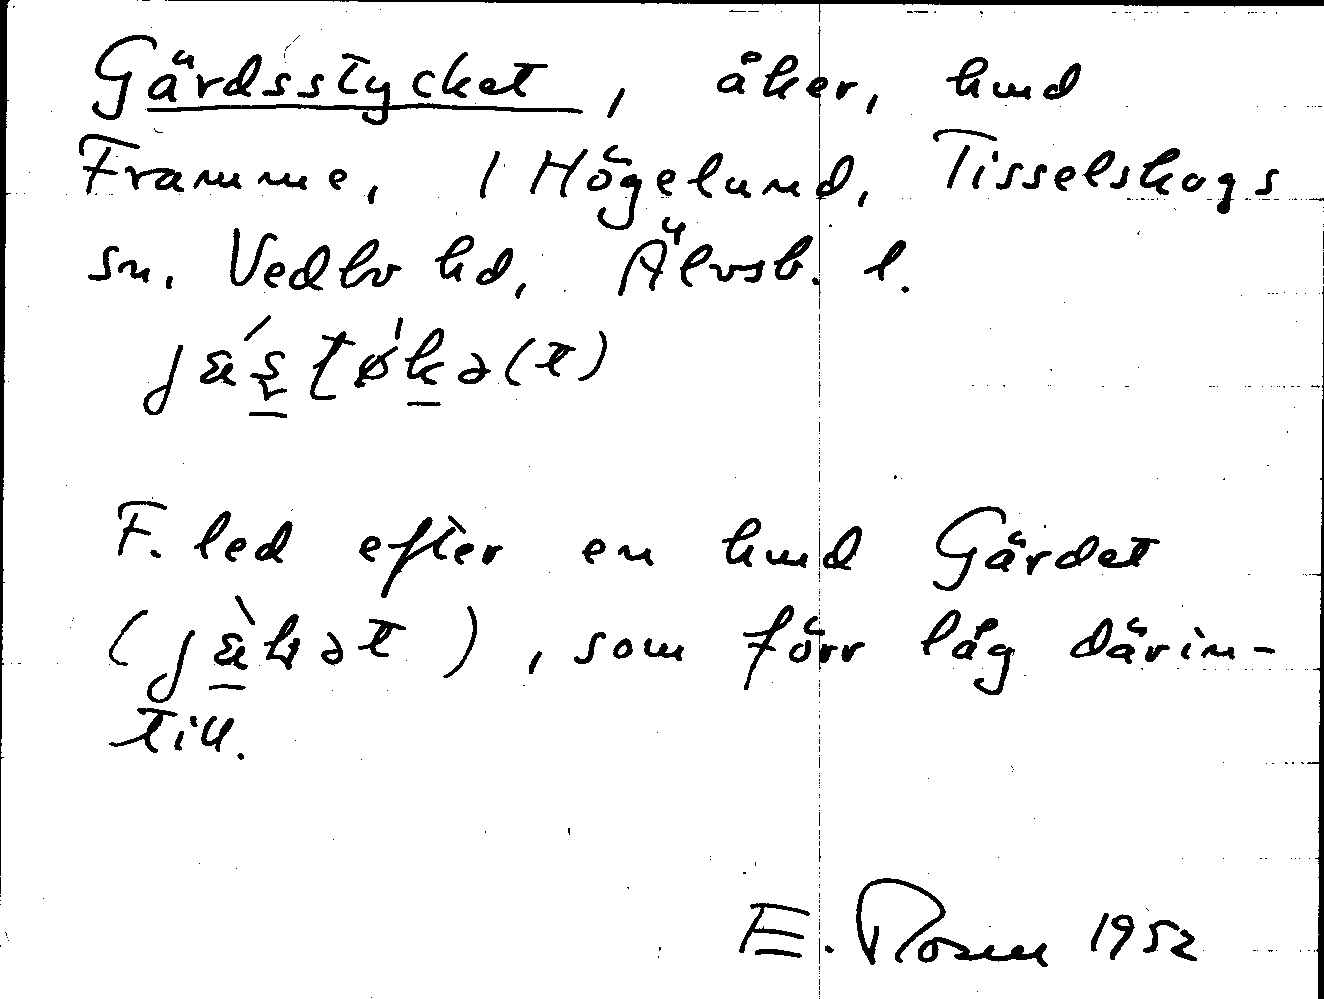 Gärdsstycket, åker, hmd
Framme, 1 Högelund, Tisselskogs
sn. Vedbo hd, Älvsb. l.
F. led efter en hmd Gärdet
som förr låg därin-
till.
E. Rosen 1952